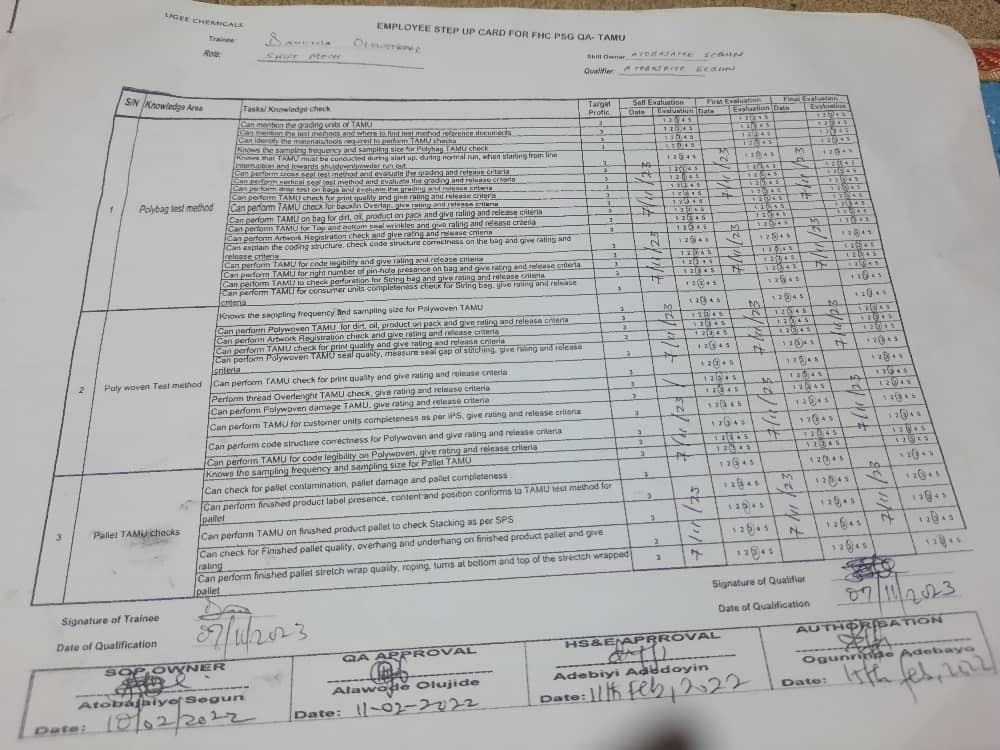 UGEE CHEMICALS
EMPLOYEE STEP UP CARD FOR FHC PSG QA- TAMU
Trainee:
Role: SHIFT MECH
Skill Owner: ATOBAJAIYE SEGUN
Qualifier: ATOBAJAIYE SEGUN
S/N Knowledge Area Tasks/ Knowledge check Target Profic. Self Evaluation First Evaluation Final Evaluation
Date Evaluation Date Evaluation Date Evaluation
1 Polybag test method
Can mention the grading units of TAMU 3 1 2 3 4 5 1 2 3 4 5 1 2 3 4 5
Can mention the test methods and where to find test method reference documents 3 1 2 3 4 5 1 2 3 4 5 1 2 3 4 5
Can identify the materials/tools required to perform TAMU checks 3 1 2 3 4 5 1 2 3 4 5 1 2 3 4 5
Knows the sampling frequency and sampling size for Polybag TAMU check 3 1 2 3 4 5 1 2 3 4 5 1 2 3 4 5
Knows that TAMU must be conducted during start up, during normal run, when starting from line
interruption and towards shutdown/powder run out 3 1 2 3 4 5 1 2 3 4 5 1 2 3 4 5
Can perform cross seal test method and evaluate the grading and release criteria
Can perform vertical seal test method and evaluate the grading and release criteria
Can perform drop test on bags and evaluate the grading and release criteria
Can perform TAMU check for print quality and give rating and release criteria
Can perform TAMU check for backfin Overlap, give rating and release criteria
Can perform TAMU on bag for dirt, oil, product on pack and give rating and release criteria
Can perform TAMU for Top and bottom seal wrinkles and give rating and release criteria
Can perform Artwork Registration check and give rating and release criteria
Can explain the coding structure, check code structure correctness on the bag and give rating and
release criteria
Can perform TAMU for code legibility and give rating and release criteria
Can perform TAMU for right number of pin-hole presence on bag and give rating and release criteria
Can perform TAMU to check perforation for String bag and give rating and release criteria
Can perform TAMU for consumer units completeness check for String bag, give rating and release
criteria
7/11/23 7/11/23 7/11/23
7/11/23 7/11/23 7/11/23
2 Poly woven Test method
Knows the sampling frequency and sampling size for Polywoven TAMU
Can perform Polywoven TAMU for dirt, oil, product on pack and give rating and release criteria
Can perform Artwork Registration check and give rating and release criteria
Can perform TAMU check for print quality and give rating and release criteria
Can perform Polywoven TAMU seal quality, measure seal gap of stitching, give rating and release
criteria
Can perform TAMU check for print quality and give rating and release criteria
Perform thread Overlenght TAMU check, give rating and release criteria
Can perform Polywoven damage TAMU, give rating and release criteria
Can perform TAMU for customer units completeness as per IPS, give rating and release criteria
Can perform code structure correctness for Polywoven and give rating and release criteria
Can perform TAMU for code legibility on Polywoven, give rating and release criteria
7/11/23 7/11/23 7/11/23
7/11/23 7/11/23 7/11/23
3 Pallet TAMU checks
Knows the sampling frequency and sampling size for Pallet TAMU
Can check for pallet contamination, pallet damage and pallet completeness
Can perform finished product label presence, content and position conforms to TAMU test method for
pallet
Can perform TAMU on finished product pallet to check Stacking as per SPS
Can check for Finished pallet quality, overhang and underhang on finished product pallet and give
rating
Can perform finished pallet stretch wrap quality, roping, turns at bottom and top of the strectch wrapped
pallet
7/11/23 7/11/23 7/11/23
Signature of Trainee
Date of Qualification 07/11/2023
Signature of Qualifier
Date of Qualification 07/11/2023
SOP OWNER
Atobajaiye Segun
Date: 10/02/2022
QA APPROVAL
Alawode Olujide
Date: 11-02-2022
HS&E APRROVAL
Adebiyi Adedoyin
Date: 11th Feb, 2022
AUTHORISATION
Ogunrinde Adebayo
Date: 15th feb, 2022